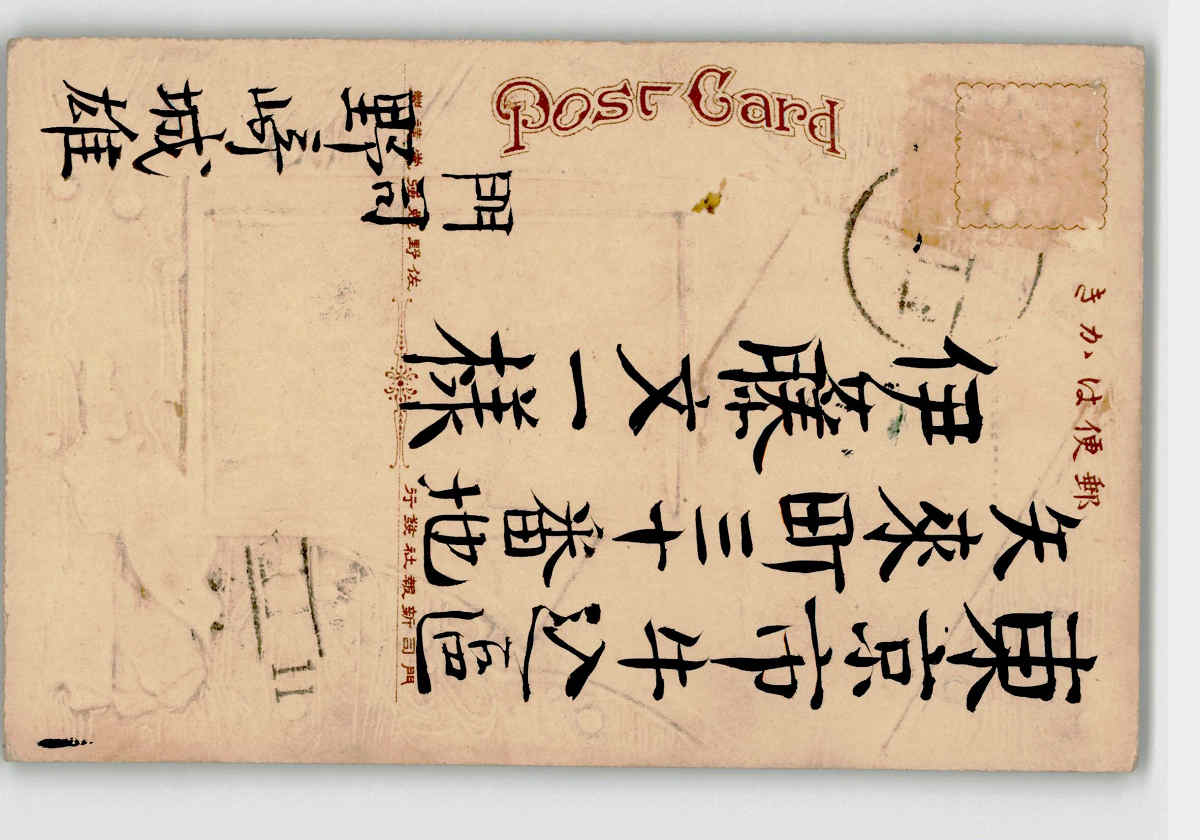 Post Card
郵便はかき
東京市牛込區
矢来町三十番地
伊藤文一様
門司
野崎城雄
門司新報社發行
11